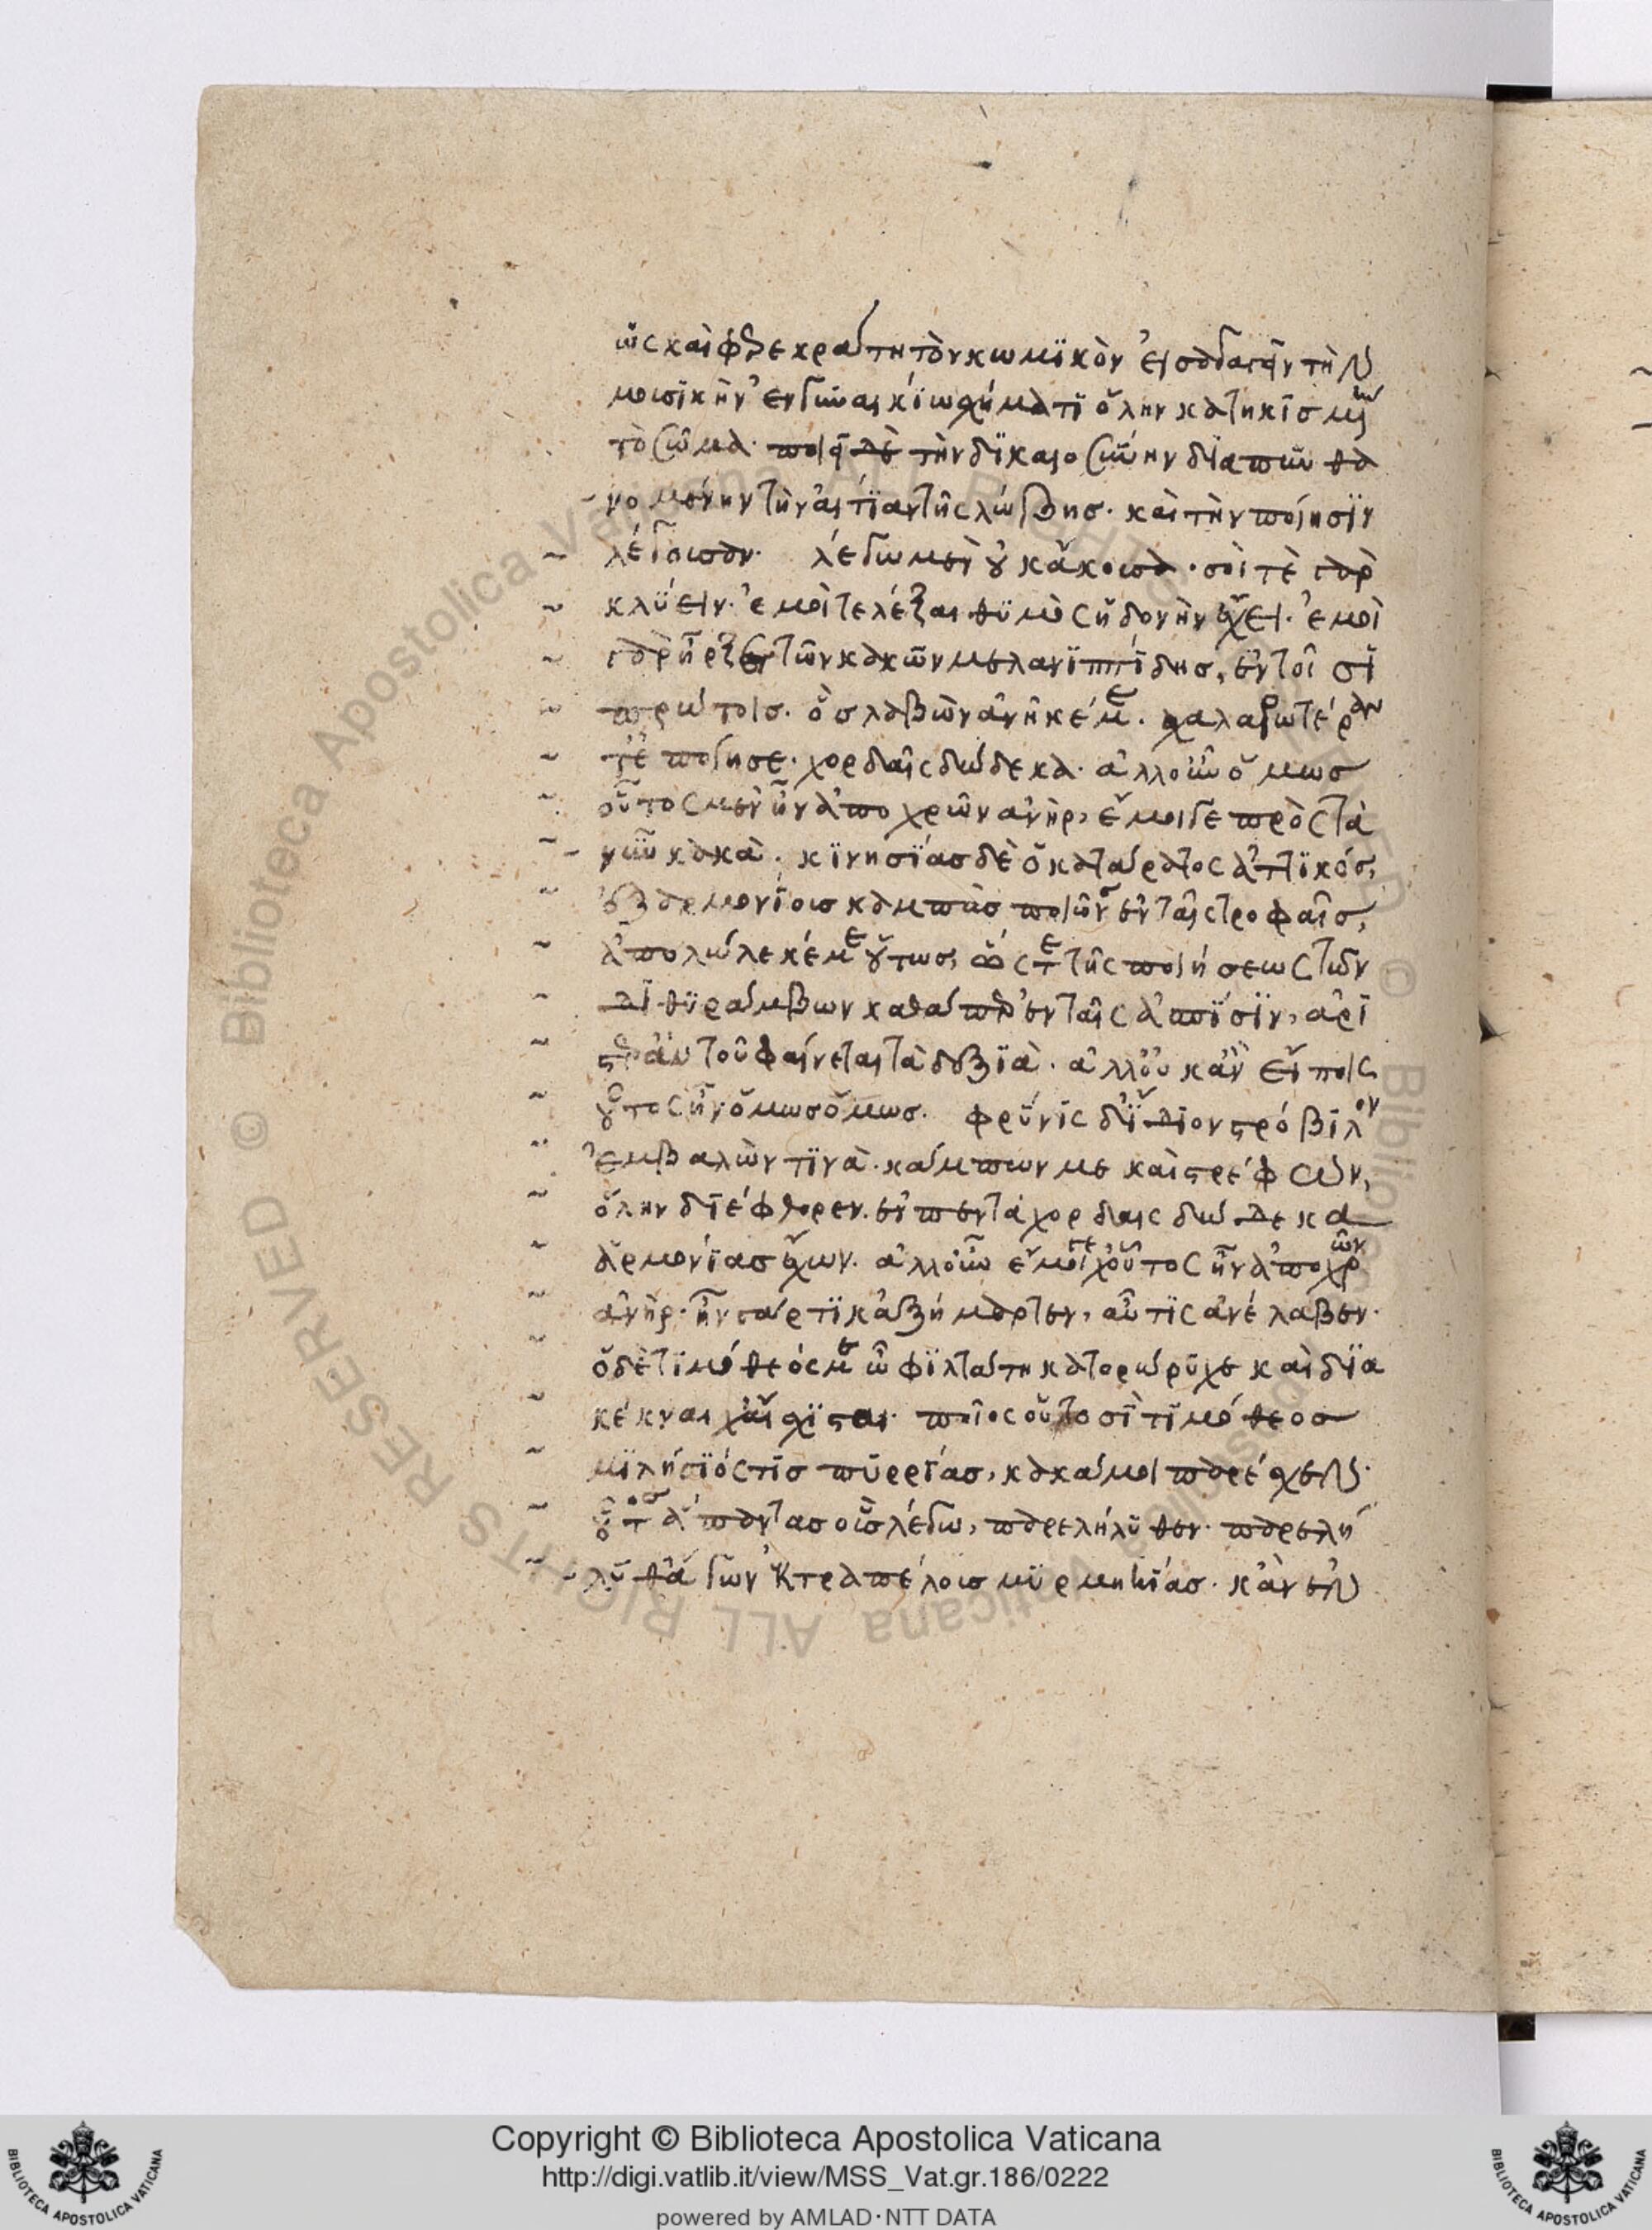 ὡς καὶ φερεκράτη τὸν κωμϊκὸν εἰσαγαγεῖν τὴν
μουσϊκὴν ἐν γυναικείω σχήματϊ ὅλην κατηκϊσμένην
τὸ σῶμα· ποιεῖ δὲ τὴν δϊκαιοσύνην δϊαπυν θα
νομένην τὴν αἰτίαν τῆς λώβης· καὶ τὴν ποίησϊν
λέγουσαν· λέξω μὲν οὐκ ἄκουσα· σοί τε γὰρ
κλύειν· ἐμοί τε λέξαι θϋμὸς ἡδονὴν ἔχει· ἐμοὶ
γὰρ ἦρξε τῶν κακῶν μελανϊππίδης, ἐν τοῖ σϊ
πρώτοις· ὃς λαβὼν ἀνῆκέ με· χαλαρωτέραν
τὲ ποίησε· χορδαῖς δώδεκα· ἀλλ' οὖν ὅμως
οὗτος μὲν ἦν ἀποχρῶν ἀνὴρ, ἔμοιγε πρὸς τὰ
νῦν κακὰ· κϊνησϊάς δὲ ὁ κατάρατος ἀττϊκός,
ἐξαρμονίους καμπὰς ποιῶν ἐν ταῖς στροφαῖς,
ἀπολώλεκέ με οὕτως, ὥστε τῆς ποιήσεως τῶν
δϊθϋράμβων καθάπερ ἐν ταῖς ἀσπίσϊν, ἀρϊ
στερὰ αὐτοῦ φαίνεται τὰ δεξϊὰ· ἀλλ' οὐ κἂν εἴποις
οὗτος ἦν ὅμως ὅμως· φρῦνϊς δ' ἴδϊον στρόβϊλον
ἐμβαλὼν τϊνὰ· κάμπτων με καὶ στρέφων,
ὅλην δϊέφθορεν· ἐν πέντα χορδαῖς δώδεκα
ἁρμονίας ἔχων· ἀλλ' οὖν ἔμοιγε χοὖτος ἦν ἀποχρῶν
ἀνὴρ· ἦν γάρ τϊ κἀξήμαρτεν, αὖτϊς ἀνέλαβεν·
ὁ δὲ τϊμόθεός με ὦ φϊλτάτη κατορώρϋχε καὶ δϊα
κέκναικ' αἴσχϊστα· ποῖος οὑτοσϊ τϊμόθεος
μϊλήσϊός τϊς πυρρίας, κακά μοι παρέχεν·
οὗτος ἅπαντας οὓς λέγω, παρελήλϋθεν· παρελή
λϋθ' ἄγων ἐκτραπέλους μϋρμηκίας· κἂν ἐν